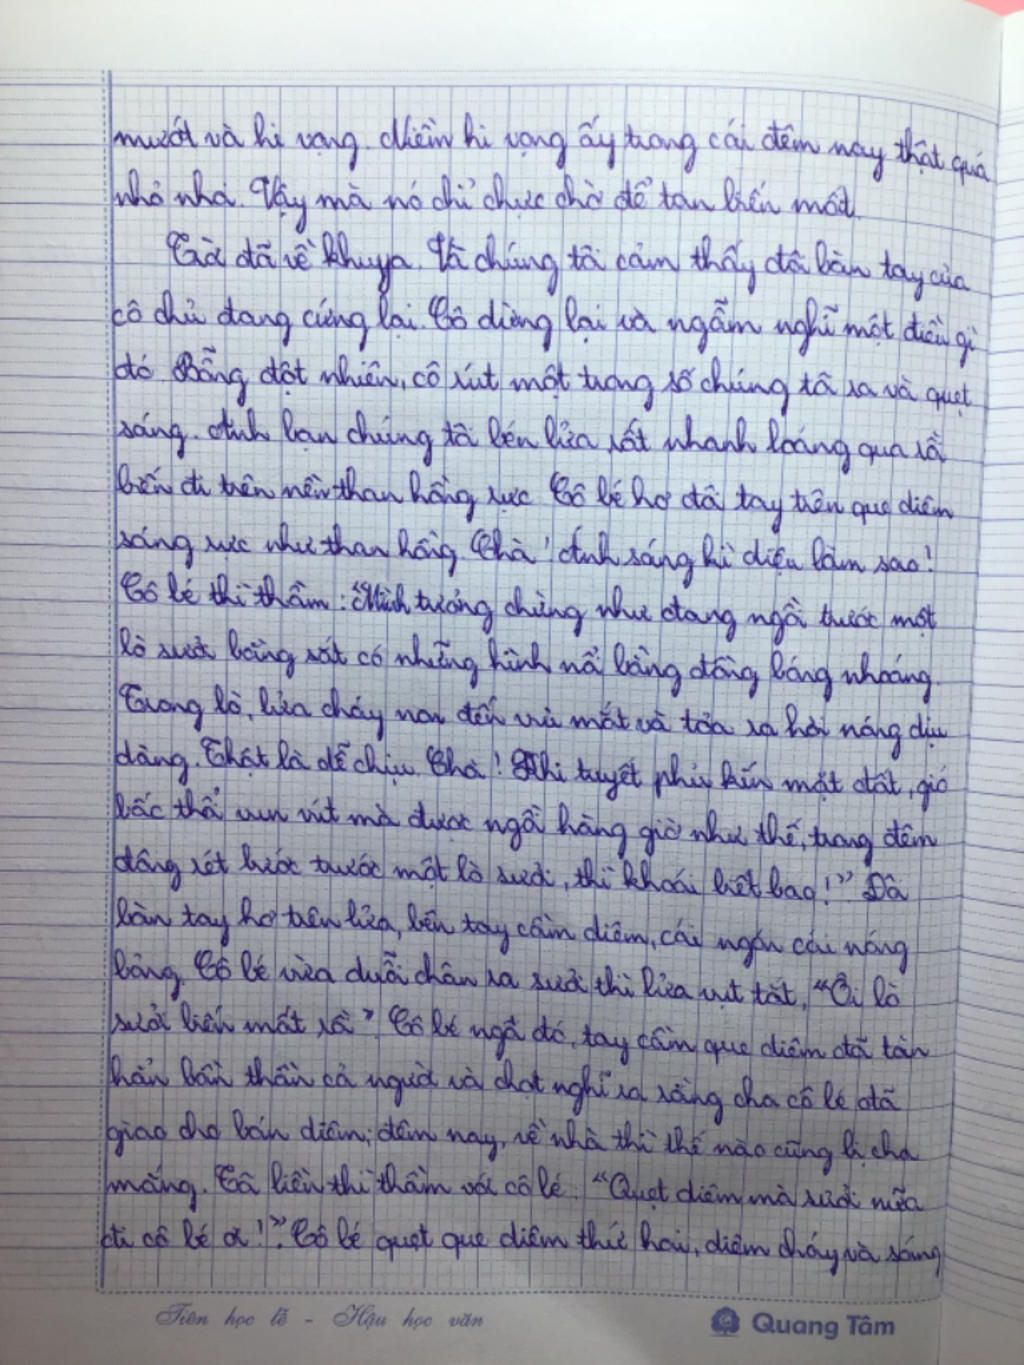 mướt và hi vọng. Niềm hi vọng ấy trong cái đêm nay thật quá
nhỏ nhoi. Vậy mà nó chỉ chực chờ để tan biến mất.
Trời đã về khuya. Và chúng tôi cảm thấy đôi bàn tay của
cô chủ đang cứng lại. Cô dừng lại và ngẫm nghĩ một điều gì
đó. Bỗng đột nhiên, cô rút một trong số chúng tôi ra và quẹt
sáng. Anh bạn chúng tôi bén lửa rất nhanh loáng qua rồi
biến đi trên nền than hồng rực. Cô bé hơ đôi tay trên que diêm
sáng rực như than hồng. Chà! Ánh sáng kì diệu làm sao!
Cô bé thì thầm: "Mình tưởng chừng như đang ngồi trước một
lò sưởi bằng sắt có những hình nổi bằng đồng bóng nhoáng.
Trong lò, lửa cháy nom đến vui mắt và tỏa ra hơi nóng dịu
dàng. Thật là dễ chịu. Chà! Khi tuyết phủ kín mặt đất, gió
bấc thổi vun vút mà được ngồi hàng giờ như thế, trong đêm
đông rét bước trước một lò sưởi, thì khoái biết bao!" Đôi
bàn tay hơ trên lửa, bên tay cầm diêm, cái ngón cái nóng
bỏng. Cô bé vừa duỗi chân ra sưởi thì lửa vụt tắt, "Ôi lò
sưởi biến mất rồi" Cô bé ngồi đó, tay cầm que diêm đã tàn
hẳn bần thần cả người và chợt nghĩ ra rằng cha cô bé đã
giao cho bán diêm; đêm nay, về nhà thì thế nào cũng bị cha
mắng. Tôi liền thì thầm với cô bé: "Quẹt diêm mà sưởi nữa
đi cô bé ơi!". Cô bé quẹt que diêm thứ hai, diêm cháy và sáng
Tiên học lễ - Hậu học văn
Quang Tâm